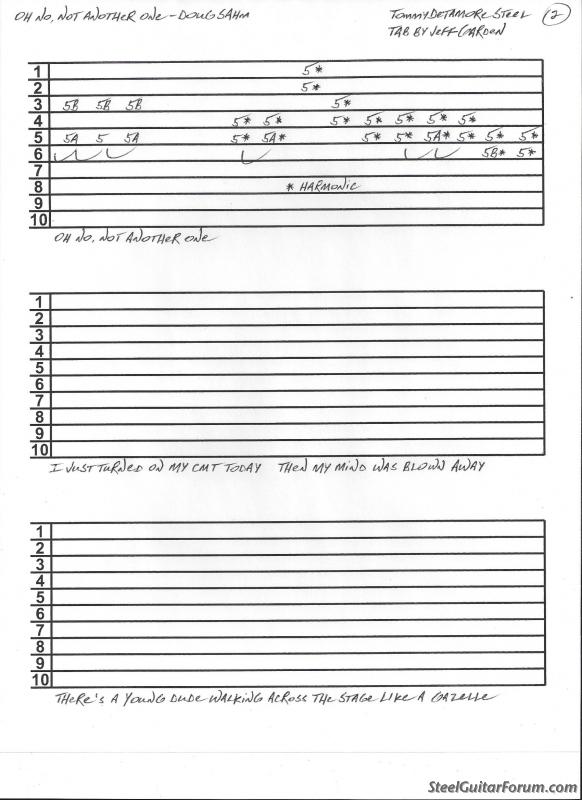 OH NO, NOT ANOTHER ONE - DOUG SAHM
TOMMY DETAMORE STEEL
TAB BY JEFF GARDEN
2
1 5*
2 5*
3 5B 5B 5B 5*
4 5* 5* 5* 5* 5* 5* 5*
5 5A 5 5A 5* 5A* 5* 5* 5A* 5* 5* 5*
6 5B* 5*
7
8 * HARMONIC
9
10
OH NO, NOT ANOTHER ONE
1
2
3
4
5
6
7
8
9
10
I JUST TURNED ON MY CMT TODAY THEN MY MIND WAS BLOWN AWAY
1
2
3
4
5
6
7
8
9
10
THERE'S A YOUNG DUDE WALKING ACROSS THE STAGE LIKE A GAZELLE
SteelGuitarForum.com